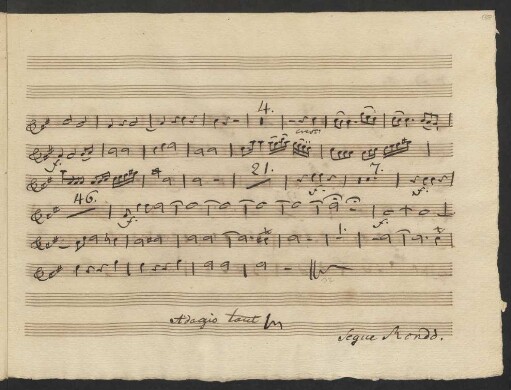 4.
cresc.
f.
21.
7.
f.
f.
46.
f.
f.
1.
Adagio tacet
Segue Rondò.